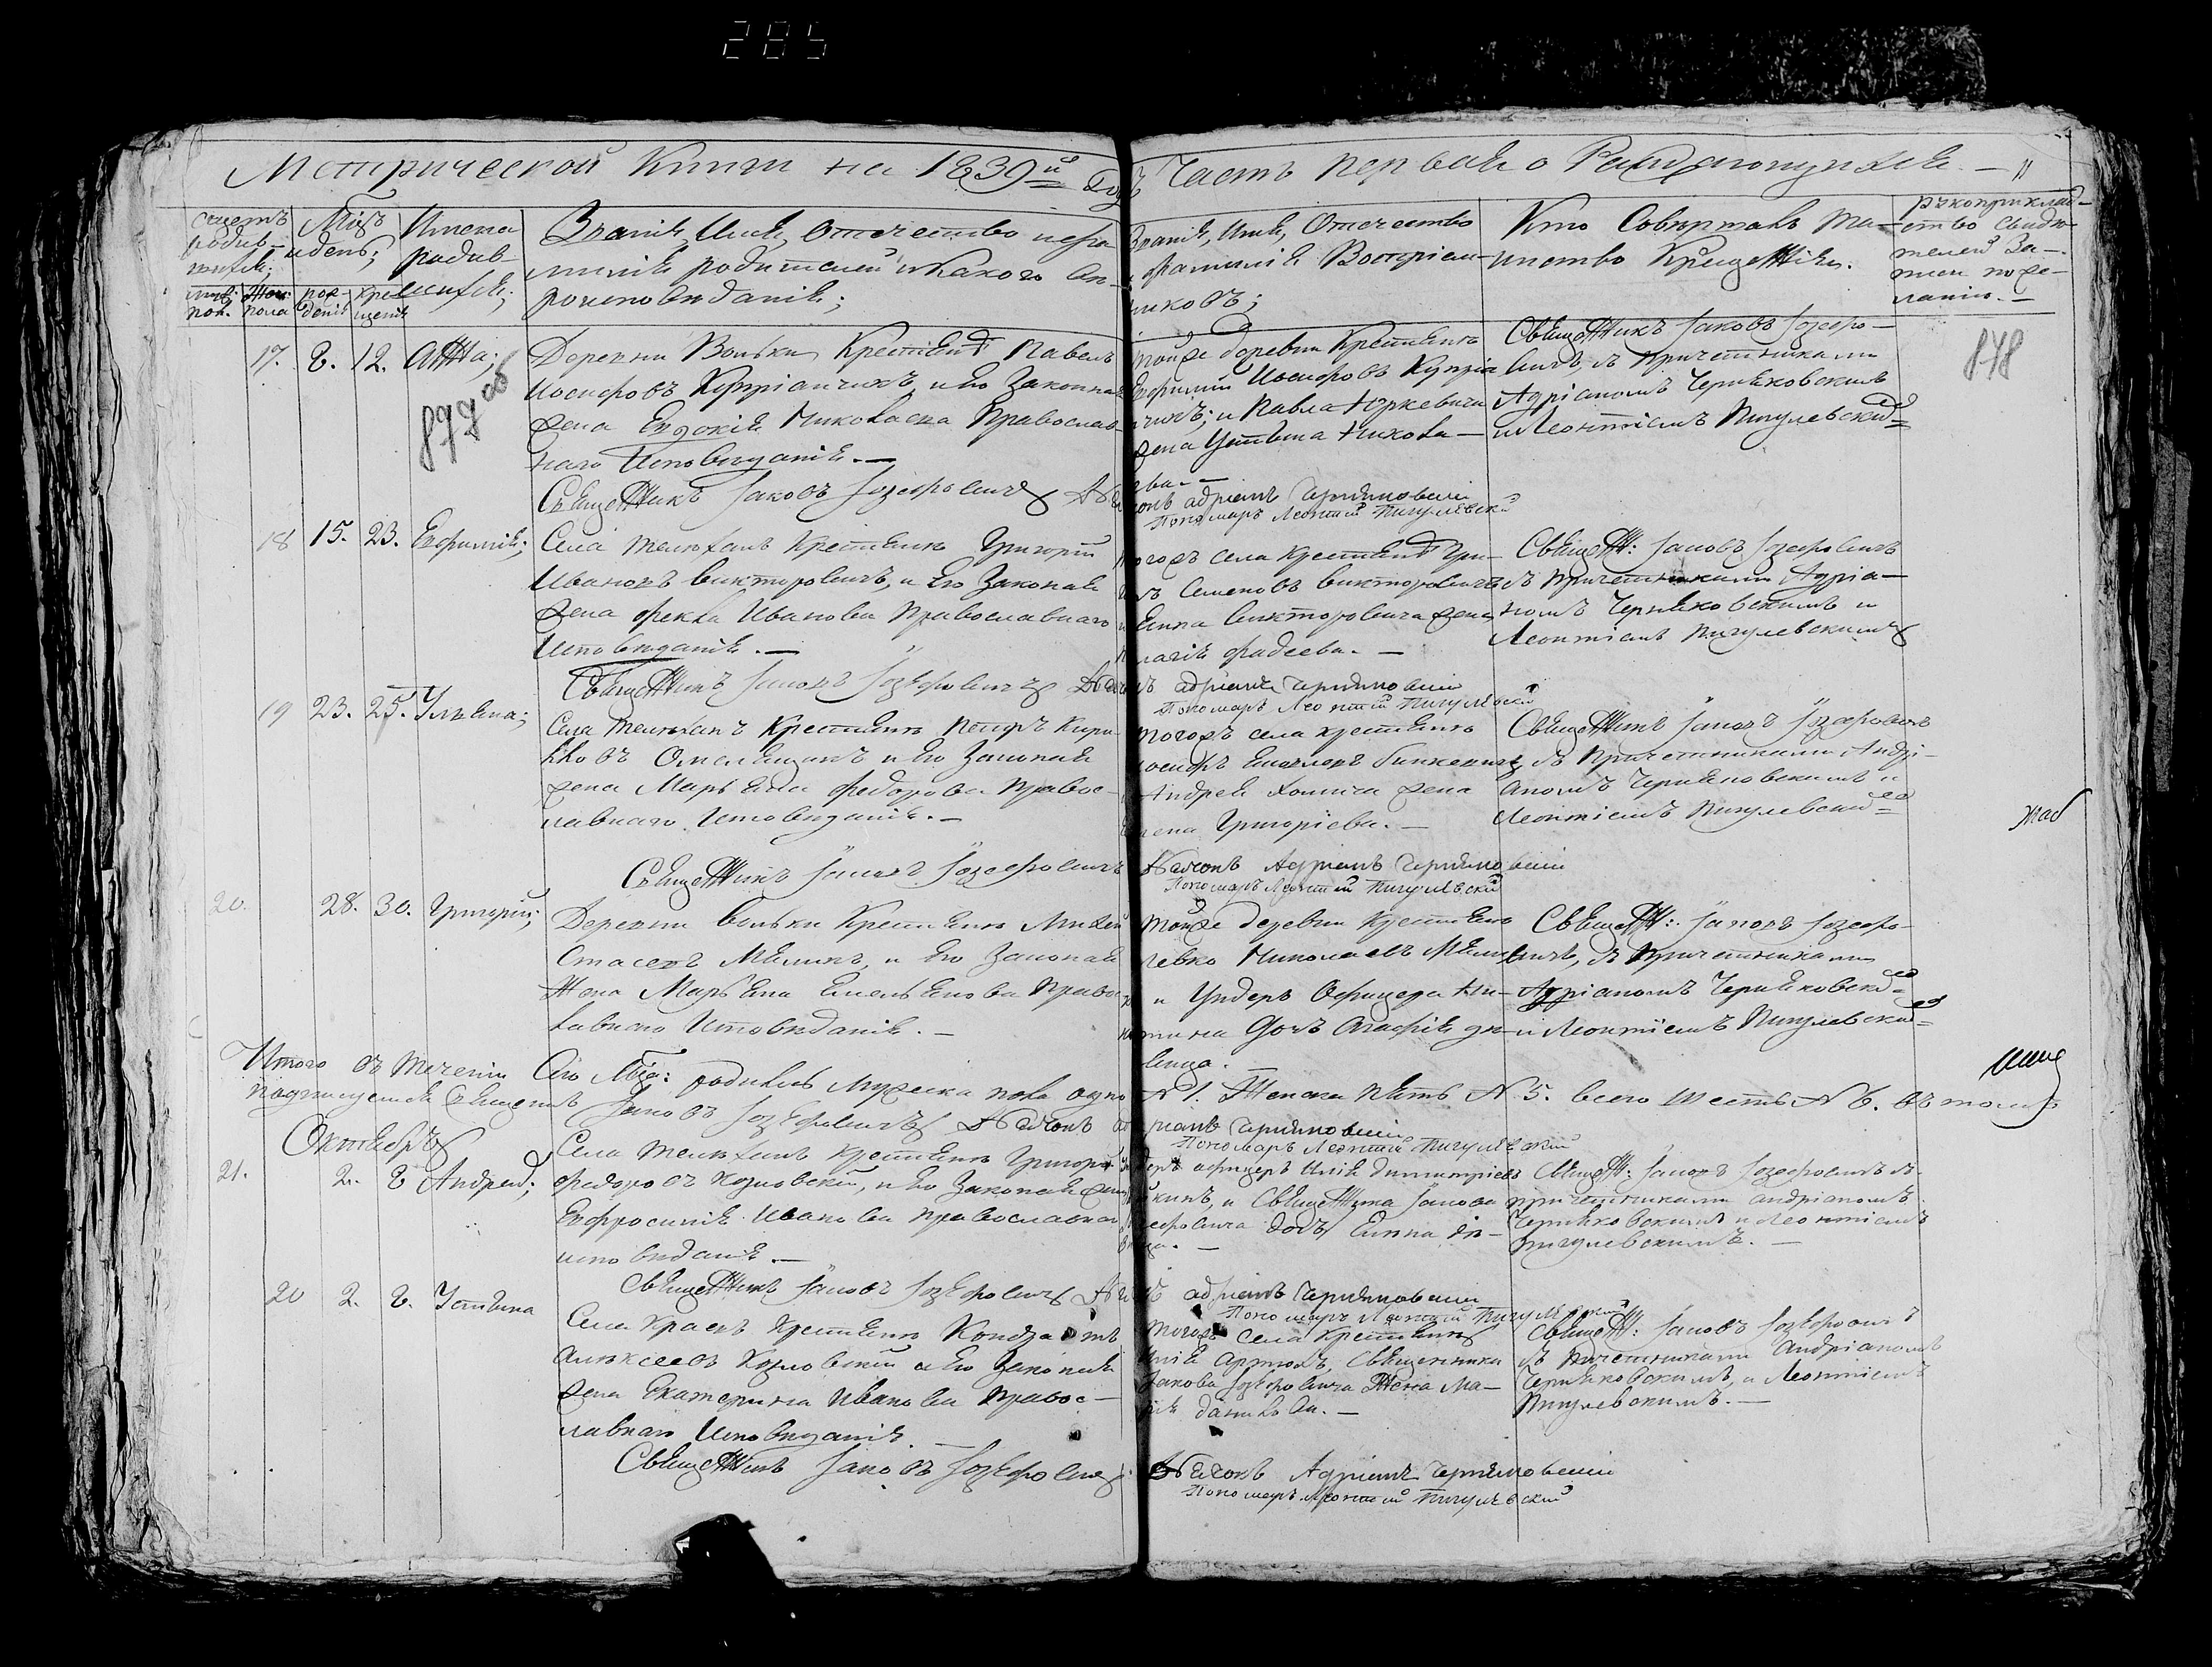 285
Метрической Книги на 1839й Годъ Часть первая о Раждающихся
Счетъ родив-шихся;
Мцъ и день;
Имена родив-шихся;
Званіе, Имя, Отечество и фа-
милія родителей и Какого
роисповеданія;
Званіе, Имя, Отечество
и фамилія Воспріем-
никовъ;
Кто Совершалъ Та-
инство Крещенія.
Рукоприклад-
ство Свидѣ-
телей За-
писи по же-
ланію.
муж: пол.
Жен: пола
рож-денія
кре-щенія
17. 8. 12. Анна;
Деревни Вольки Крестьянъ Павелъ
Иосифовъ Купріанчикъ, и Его Законная
жена Евдокія Николаева Православ-
наго Исповеданія.
Тойже деревни Крестьянъ
Ефимій Иосифовъ Купріа
нчикъ; и Павла Юркевича
жена Устина Никола-
ева.
Священникъ Іаковъ Іозефо-
вичъ, съ причетниками
Адріаномъ Черняковскимъ
и Леонтіемъ Пигулевским
877 об
878
Священникъ Іаковъ Іозефовичъ Дьячонъ адріанъ Черняковскій
Пономаръ Леонтій Пигулевскій
18 15. 23. Евфимія;
Села Телеханъ Крестьянинъ Григорій
Ивановъ Викторовичъ, и Его Законная
жена Фекла Иванова Православнаго
Исповеданія.
тогожъ села крестьянъ Гри-
Семеновъ Викторовичъ
Викторовича жена
Фадеева.
Священ: Іаковъ Іозефовичъ
съ причетниками Адріа-
номъ Черняковскимъ и
Леонтіемъ Пигулевскимъ
Священникъ Іаковъ Іозефовичъ Дьячонъ адріанъ Черняковскій
Пономаръ Леонтій Пигулевскій
19 23. 25. Ульяна;
Села Телеханъ Крестьянинъ Петръ Кири-
ловъ и Его Законная
жена Марьяна Федорова Правос-
лавнаго Исповеданія.
тогожъ села крестьянинъ
Иосифъ
Андрея Хомича жена
Григоріева.
Священникъ Іаковъ Іозефовичъ
съ Причетниками Андрі-
аномъ Черняковскимъ и
Леонтіемъ Пигулевским
Священникъ Іаковъ Іозефовичъ Дьячонъ Адріанъ Черняковскій
Пономаръ Леонтій Пигулевскій
20. 28. 30. Григорій;
Деревни Вольки Крестьянинъ Михей
Стасевъ Мелихъ, и Его Законная
Жена Марьяна Емельянова Правос
лавнаго Исповеданія.
тойже деревни Крестьянинъ
Левко Николаевъ
и Ундеръ Офицера
дочь Агафія дѣ-
вица.
Священ: Іаковъ Іозефо-
вичъ, съ Причетниками
Адріаномъ Черняковским
и Леонтіемъ Пигулевским
Итого въ теченіи Сего Мца: родилось Мужеска пола одно №1. Женска пять №5. всего шесть №6. въ томъ
подписуемся Священикъ Іаковъ Іозефовичъ Дьячонъ адріанъ Черняковскій
Пономаръ Леонтій Пигулевскій
Октябрь
21. 2. 8 Андрей;
Села Телеханъ Крестьянинъ Григорій
Федоровъ Козловскій, и Его Законная жена
Евфросинія Иванова Православнаго
исповеданія.
Ундеръ афицеръ Илія Димитріевъ
и Священника Іакова
Іозефовича дочь дѣ-
вица.
Священ: Іаковъ Іозефовичъ съ
причетниками андріаномъ
Черняковскимъ и Леонтіемъ
Пигулевскимъ.
Священникъ Іаковъ Іозефовичъ Дьячонъ адріанъ Черняковскій
Пономаръ Леонтій Пигулевскій
20 2. 8. Устина
Села Краевъ Крестьянинъ Кондратъ
Алексеевъ Козловскій и Его Законная
жена Екатерина Иванова Правос-
лавнаго Исповеданія.
Тогожъ села Крестьянинъ
Илія Артюхъ, Священника
Іакова Іозефовича Жена Ма-
рія
Священ: Іаковъ Іозефовичъ
съ причетниками Андріаномъ
Черняковскимъ, и Леонтіемъ
Пигулевскимъ.
Священникъ Іаковъ Іозефовичъ Дьячонъ Адріанъ Черняковскій
Пономаръ Леонтій Пигулевскій